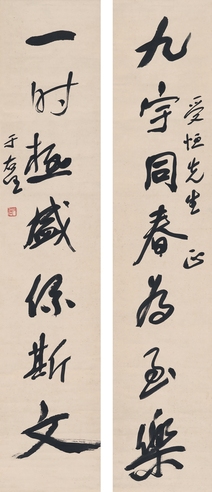 九宇同春为至樂
受恒先生正
一时極盛係斯文
于右任